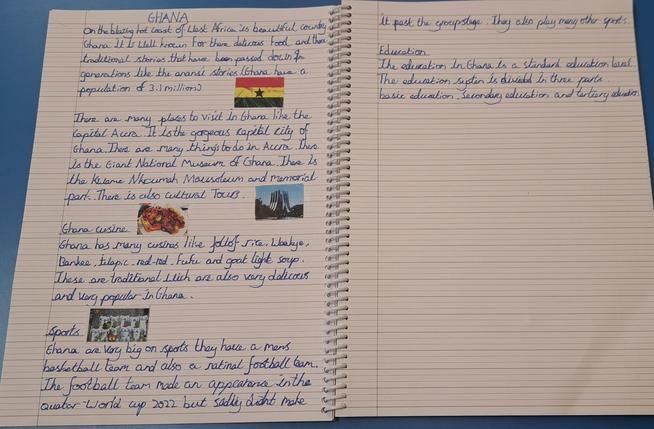 GHANA
On the blazing hot coast of West Africa is beautiful country
Ghana it is well known for there delicous food and there
traditional stories that have been passed down in
generations like the anansi stories (Ghana have a
population of 3.1 million)
There are many places to visit in Ghana like the
Capital Accra. It is the gorgeous capital city of
Ghana. There are many things to do in Accra there
is the Giant National Museum of Ghana. There is
the Kwame Nkrumah Mausoleum and memorial
park. There is also cultural Tours.
Ghana cusine
Ghana has many cusines like jollof rice, Waakye,
Bankee, tilapic, red-red, Fufu and goat light soup.
These are traditional which are also very delicous
and very popular in Ghana.
Sports
Ghana are very big on sports they have a mens
basketball team and also a natinal football team.
The football team made an appearance in the
quatar World cup 2022 but sadly didnt make
it past the group stage. They also play many other sports.
Education
The education in Ghana is a standard education level
The education system is divided in three parts.
basic education, secondary education and tertiary education